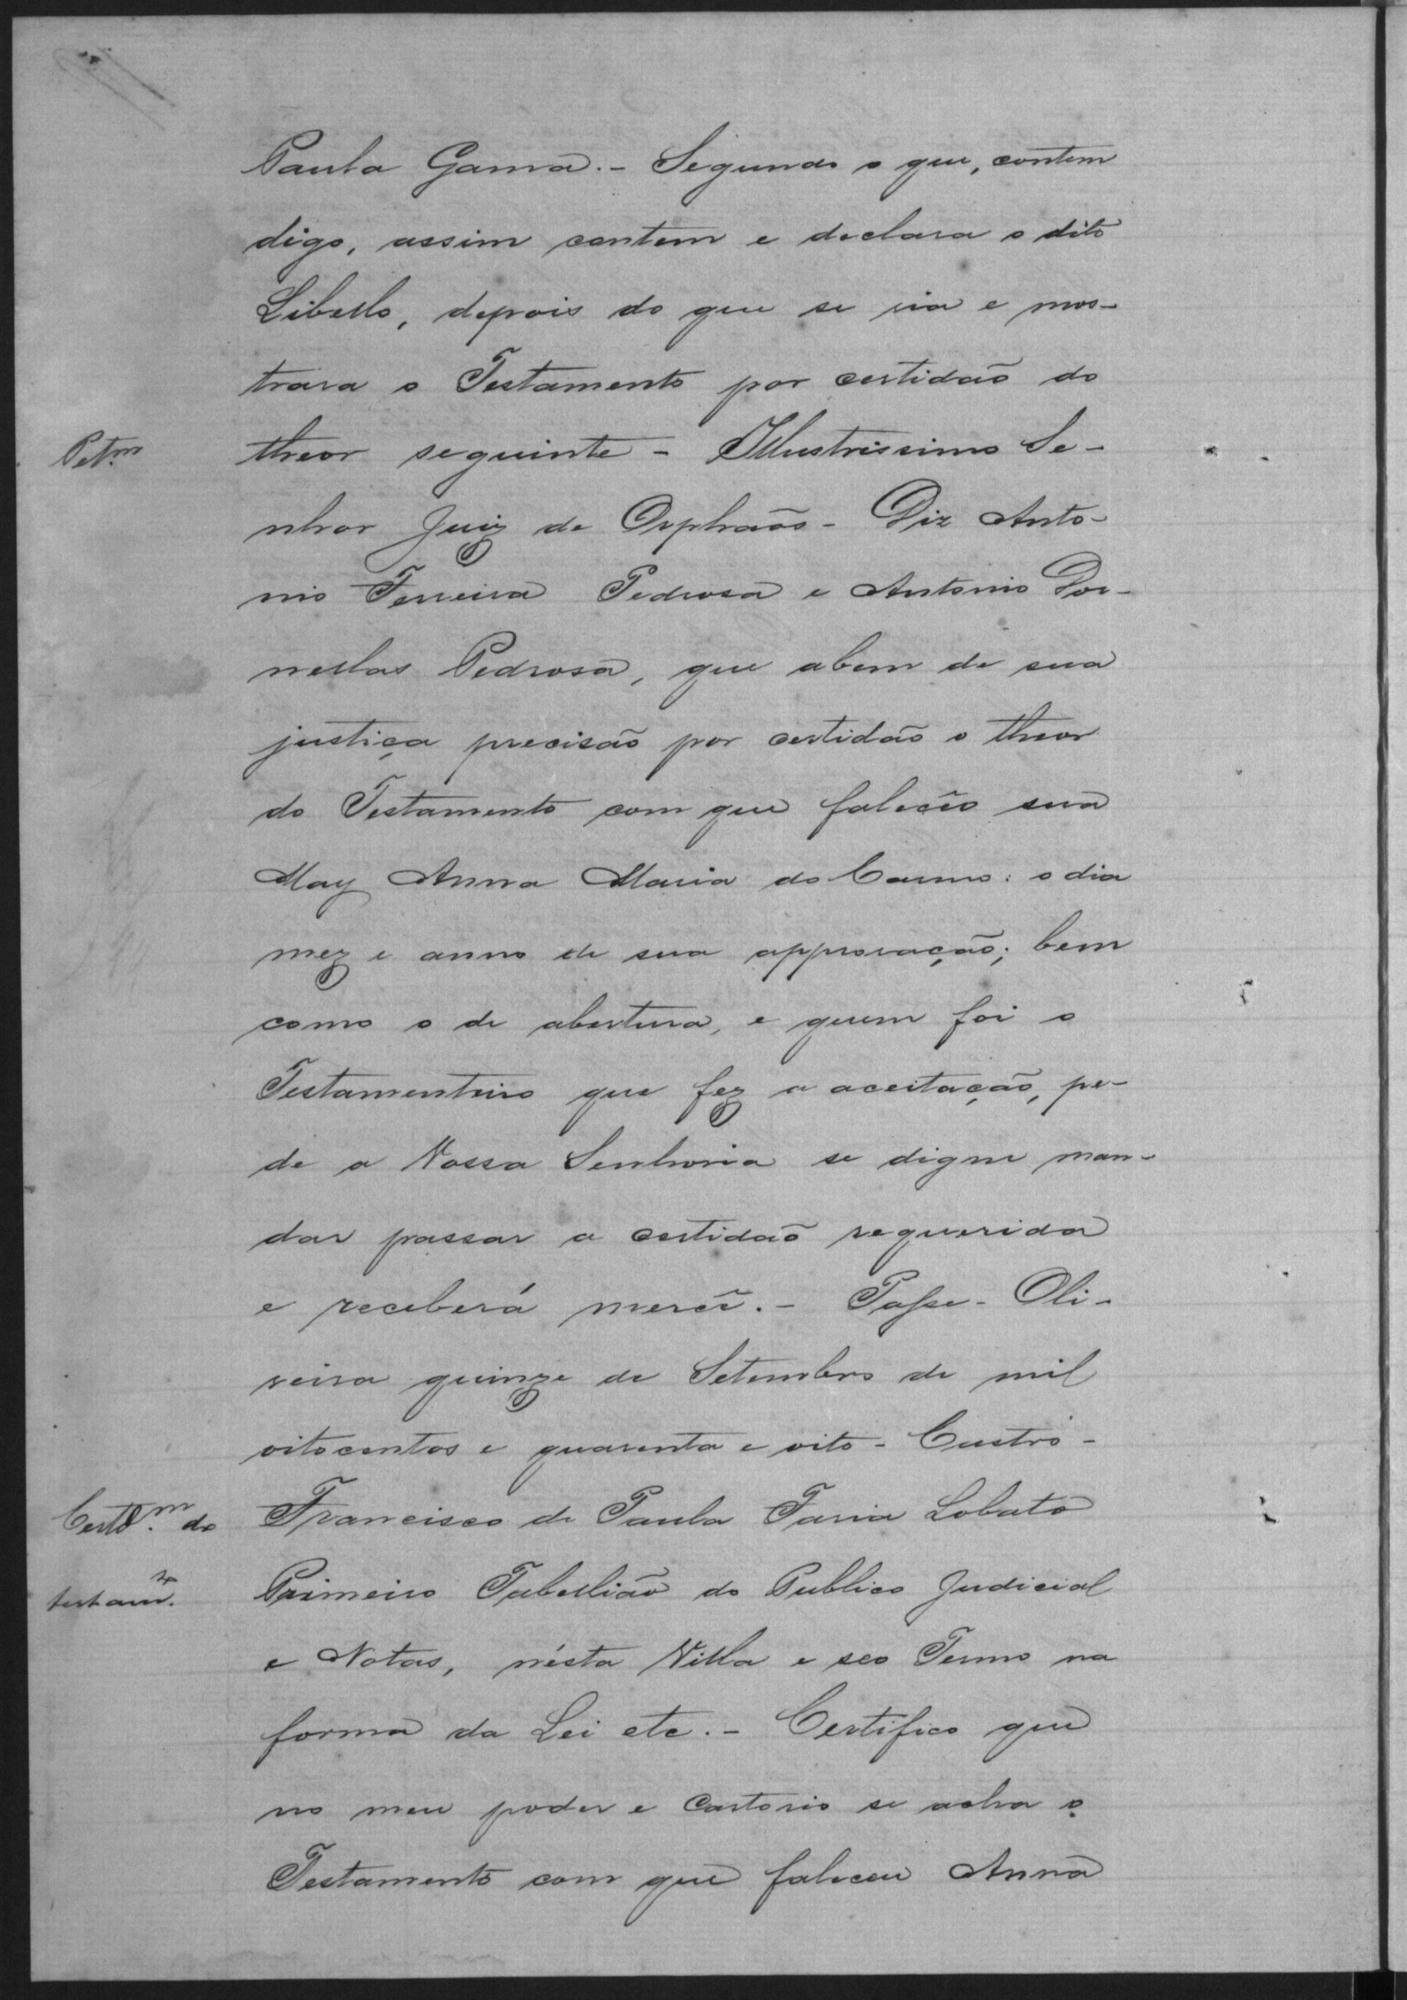 Paula Gama.- Segundo o que, contem
digo, assim contem e declara o dito
Libello, depois do que se via e mos-
trava o Testamento por certidão do
Petm. theor seguinte - Illustrissimo Se-
nhor Juiz de Orphãos - Diz Anto-
nio Ferreira Pedrosa e Antonio Dor-
nellas Pedrosa, que abem de sua
justiça precisão por certidão o theor
do Testamento com que falecêo sua
May Anna Maria do Carmo: o dia
mez e anno de sua approvação; bem
como o de abertura, e quem foi o
Testamenteiro que fez a aceitação, pe-
de a Vossa Senhoria se digne man-
dar passar a certidão requerida
e receberá mercê. - Passe - Oli-
veira quinze de Setembro de mil
oitocentos e quarenta e oito - Castro -
Certdm. do Francisco de Paula Faria Lobato
testamto. Primeiro Tabellião do Publico Judicial
e Notas, nésta Villa e seo Termo na
forma da Lei etc. - Certifico que
no meu poder e Cartorio se acha o
Testamento com que faleceu Anna